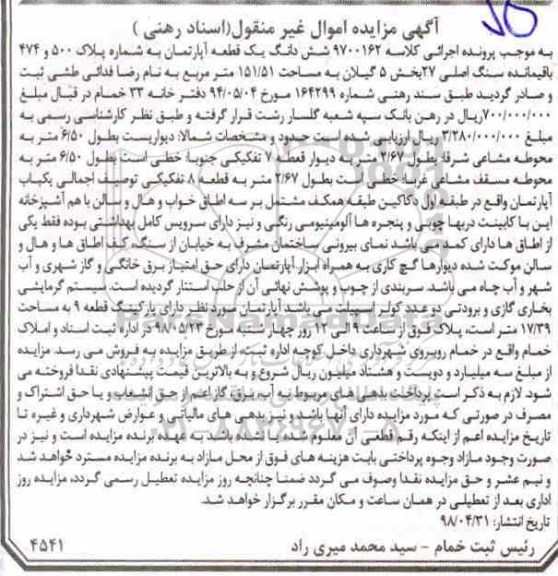 آگهی مزایده اموال غیر منقول(اسناد رهنی )
به موجب پرونده اجرائی کلاسه ۹۷۰۰۱۶۲ شش دانگ یک قطعه آپارتمان به شماره پلاک ۵۰۰ و ۴۷۴
باقیمانده سنگ اصلی ۲۷بخش ۵ گیلان به مساحت ۱۵۱/۵۱ متر مربع به نام رضا فدائی طشی ثبت
و صادر گردید طبق سند رهنی شماره ۱۶۴۲۹۹ مورخ ۹۴/۰۵/۰۴ دفتر خانه ۳۳ خمام در قبال مبلغ
۷۰۰/۰۰۰/۰۰۰ریال در رهن بانک سپه شعبه گلسار رشت قرار گرفته و طبق نظر کارشناسی رسمی به
مبلغ ۳/۲۸۰/۰۰۰/۰۰۰ ریال ارزیابی شده است حدود و مشخصات شمالا: دیواریست بطول ۶/۵۰ متر به
محوطه مشاعی شرقا: بطول ۲/۶۷ متر به دیوار قطعه ۷ تفکیکی جنوبا: خطی است بطول ۶/۵۰ متر به
محوطه مسقف مشاعی غربا: خطی است بطول ۲/۶۷ متر به قطعه ۸ تفکیکی توصیف اجمالی یکباب
آپارتمان واقع در طبقه اول دکاکین طبقه همکف مشتمل بر سه اطاق خواب و هال و سالن با هم آشپزخانه
این با کابینت دربها چوبی و پنجره ها آلومینیومی رنگی و نیز دارای سرویس کامل بهداشتی بوده فقط یکی
از اطاق ها دارای کمد می باشد نمای بیرونی ساختمان مشرف به خیابان از سنگ، کف اطاق ها و هال و
سالن موکت شده دیوارها گچ کاری به همراه ابزار آپارتمان دارای حق امتیاز برق خانگی و گاز شهری و آب
شهر و آب چاه می باشد. سربندی از چوب و پوشش نهائی آن از حلب استتار گردیده است. سیستم گرمایشی
بخاری گازی و برودتی دو عدد کولر اسپیلت می باشد آپارتمان مورد نظر دارای پارکینگ قطعه ۹ به مساحت
۱۷/۳۹ متر است، پلاک فوق از ساعت ۹ الی ۱۲ روز چهار شنبه مورخ ۹۸/۰۵/۲۳ در اداره ثبت اسناد و املاک
خمام واقع در خمام روبروی شهرداری داخل کوچه اداره ثبت، از طریق مزایده به فروش می رسد: مزایده
از مبلغ سه میلیارد و دویست و هشتاد میلیون ریال شروع و به بالاترین قیمت پیشنهادی نقدا فروخته می
شود. لازم به ذکر است پرداخت بدهی های مربوط به آب، برق، گاز اعم از حق انشعاب و یا حق اشتراک و
مصرف در صورتی که مورد مزایده دارای آنها باشد و نیز بدهی های مالیاتی و عوارض شهرداری و غیره تا
تاریخ مزایده اعم از اینکه رقم قطعی آن معلوم شده یا نشده باشد به عهده برنده مزایده است و نیز در
صورت وجود مازاد وجوه پرداختی بابت هزینه های فوق از محل مازاد به برنده مزایده مسترد خواهد شد
و نیم عشر و حق مزایده نقدا وصول می گردد ضمنا چنانچه روز مزایده تعطیل رسمی گردد، مزایده روز
اداری بعد از تعطیلی در همان ساعت و مکان مقرر برگزار خواهد شد.
تاریخ انتشار: ۹۸/۰۴/۳۱
رئیس ثبت خمام - سید محمد میری راد
۴۵۴۱